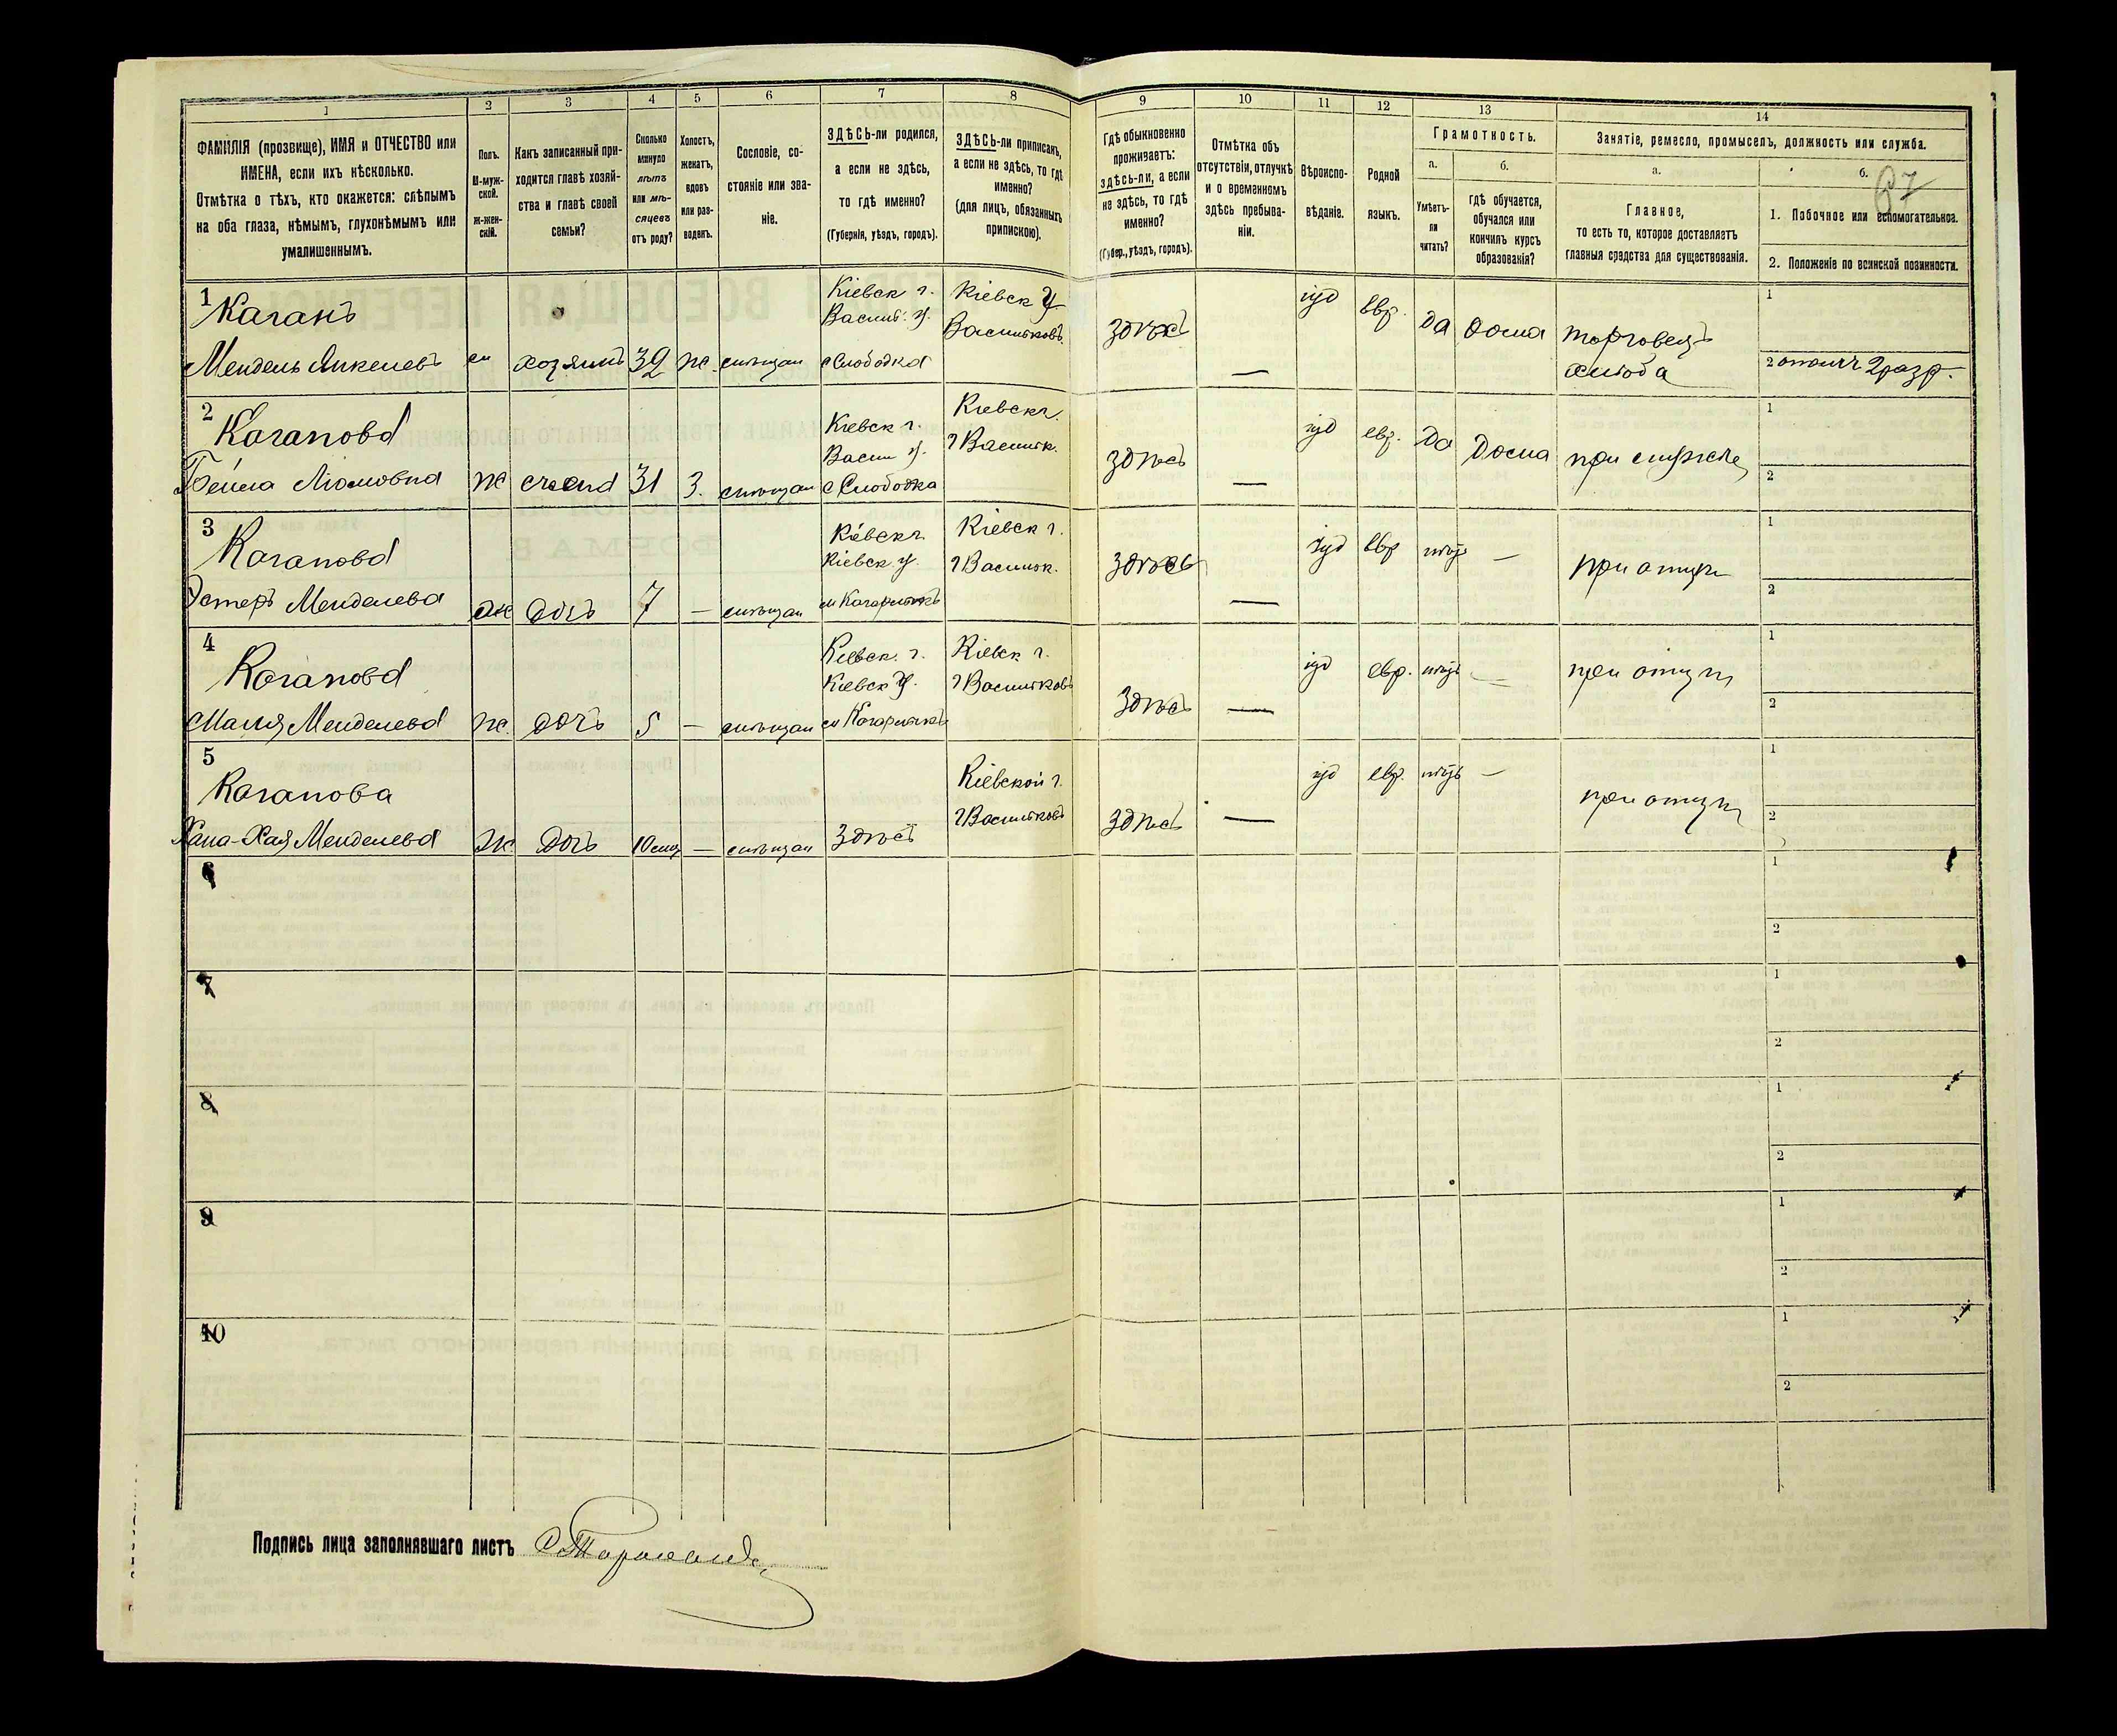 1
2
3
4
5
6
7
8
9
10
11
12
13
14
ФАМИЛІЯ (прозвище), ИМЯ и ОТЧЕСТВО или
ИМЕНА, если ихъ нѣсколько.
Отмѣтка о тѣхъ, кто окажется: слѣпымъ
на оба глаза, нѣмымъ, глухонѣмымъ или
умалишеннымъ.
Полъ.
М-муж-
ской.
Ж-жен-
скій.
Какъ записанный при-
ходится главѣ хозяй-
ства и главѣ своей
семьи?
Сколько
минуло
лѣтъ
или мѣ-
сяцевъ
отъ роду?
Холостъ,
женатъ,
вдовъ
или раз-
веденъ.
Сословіе, со-
стояніе или зва-
ніе.
ЗДѢСЬ-ли родился,
а если не здѣсь,
то гдѣ именно?
(Губернія, уѣздъ, городъ).
ЗДѢСЬ-ли приписанъ,
а если не здѣсь, то гдѣ
именно?
(для лицъ, обязанныхъ
припискою).
Гдѣ обыкновенно
проживаетъ:
здѣсь-ли, а если
не здѣсь, то гдѣ
именно?
(Губер., уѣздъ, городъ).
Отмѣтка объ
отсутствіи, отлучкѣ
и о временномъ
здѣсь пребыва-
ніи.
Вѣроиспо-
вѣданіе.
Родной
языкъ.
Грамотность.
а.
Умѣетъ-
ли
читать?
б.
Гдѣ обучается,
обучался или
кончилъ курсъ
образованія?
Занятіе, ремесло, промыселъ, должность или служба.
а.
Главное,
то есть то, которое доставляетъ
главныя средства для существованія.
б.
67
1. Побочное или вспомогательное.
2. Положеніе по воинской повинности.
1
Каганъ
Мендель Янкелевъ
м
хозяинъ
32
ж.
мѣщан
Кіевск г.
Васильк. у.
с Слободка
Кіевск у
Васильковъ
здѣсь
—
іуд
евр.
да
дома
торговецъ
хлѣба
1
2 ополч 2 разр.
2
Каганова
Бейла Люмовна
ж
жена
31
з.
мѣщан
Кіевск г.
Васил у.
с Слободка
Кіевск г.
г Васильк.
здѣсь
—
іуд
евр.
да
дома
при мужѣ
1
2
3
Каганова
Эстеръ Менделева
ж
дочь
7
—
мѣщан
Кіевск г.
Кіевск у.
м Кагарлыкъ
Кіевск г.
г Васильк.
здѣсь
—
іуд
евр
нѣтъ
—
при отцѣ
1
2
4
Каганова
Малия Менделева
ж.
дочь
5
—
мѣщан
Кіевск. г.
Кіевск у.
м Кагарлыкъ
Кіевск г.
г Васильковъ
здѣсь
—
іуд
евр.
нѣтъ
—
при отцѣ
1
2
5
Каганова
Хана-Хая Менделева
ж
дочь
10 мц
—
мѣщан
здѣсь
Кіевской г.
г Васильковъ
здѣсь
—
іуд
евр.
нѣтъ
—
при отцѣ
1
2
6
1
2
7
1
2
8
1
2
9
1
2
10
1
2
Подпись лица заполнявшаго листъ